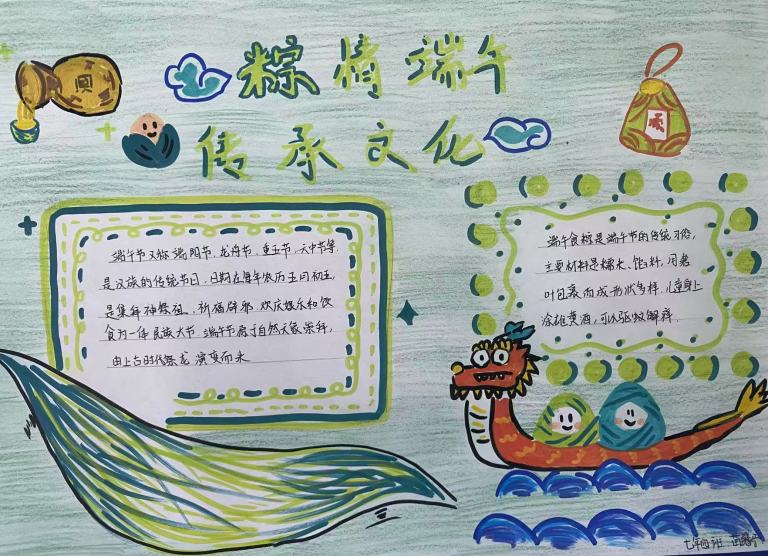 粽情端午
传承文化
端午节又称端阳节、龙舟节、重五节、天中节等
是汉族的传统节日,日期在每年农历五月初五
是集拜神祭祖、祈福辟邪、欢庆娱乐和饮
食为一体民族大节,端午节源于自然天象崇拜,
由上古时代祭龙演变而来
端午食粽是端午节的传统习俗,
主要材料是糯米、馅料,用箬
叶包裹而成形状多样,儿童身上
涂雄黄酒,可以驱蚊解痒.
七年四班